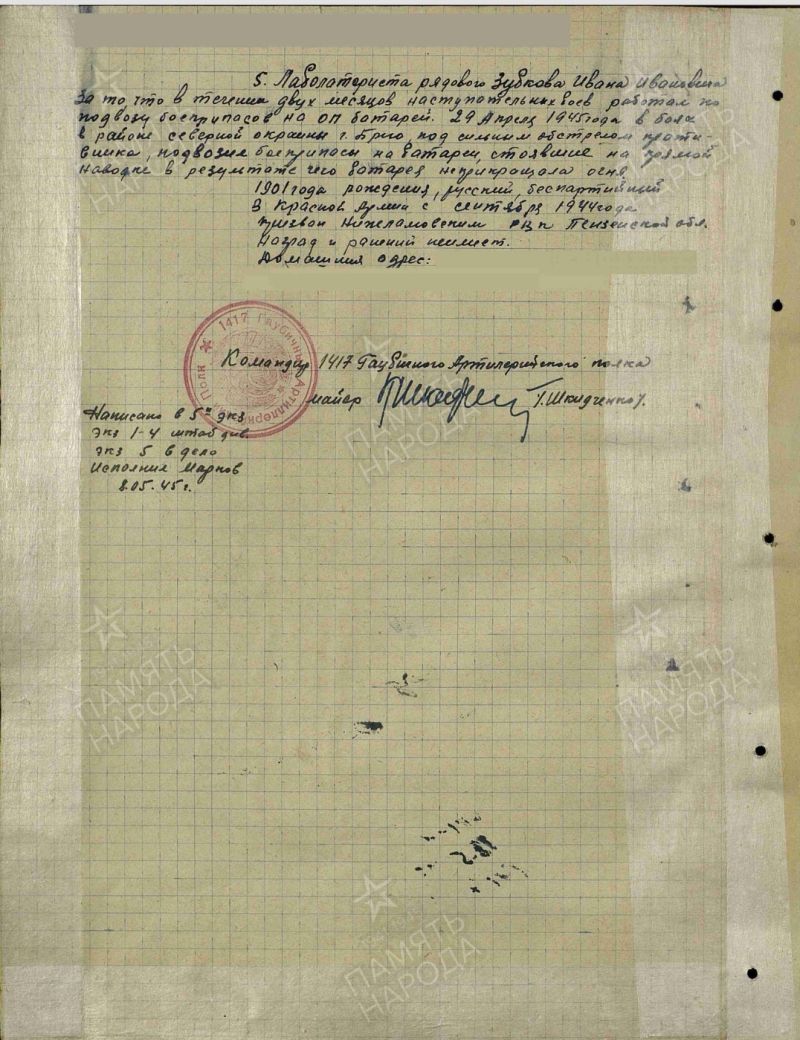 5. Лаболаториста рядового Зубкова Ивана Ивановича
За то, что в течении двух месяцов наступательных боев работал по
подвозу боеприпасов на ОП батарей. 29 Апреля 1945 года в боях
в районе северной окраины г. Брно, под сильным обстрелом проти-
вника, подвозил боеприпасы на батареи, стоявшие на прямой
наводке в результате чего батарея неприкращала огня
1901 года рождения, русский, беспартийный
В Красной Армии с сентября 1944 года
Призван Нижеламовским РВК Пензенской обл.
Наград и ранений неимеет.
Домашний адрес:
1417 Гаубичный Артиллерийский Полк
Командир 1417 Гаубичного Артилерийского полка
майор /Шкидченко/.
Написано в 5и экз
экз 1-4 штаб див.
экз 5 в дело
Исполнил Марков
8.05.45 г.
ПАМЯТЬ
НАРОДА
ПАМЯТЬ
НАРОДА
ПАМЯТЬ
НАРОДА
ПАМЯТЬ
НАРОДА